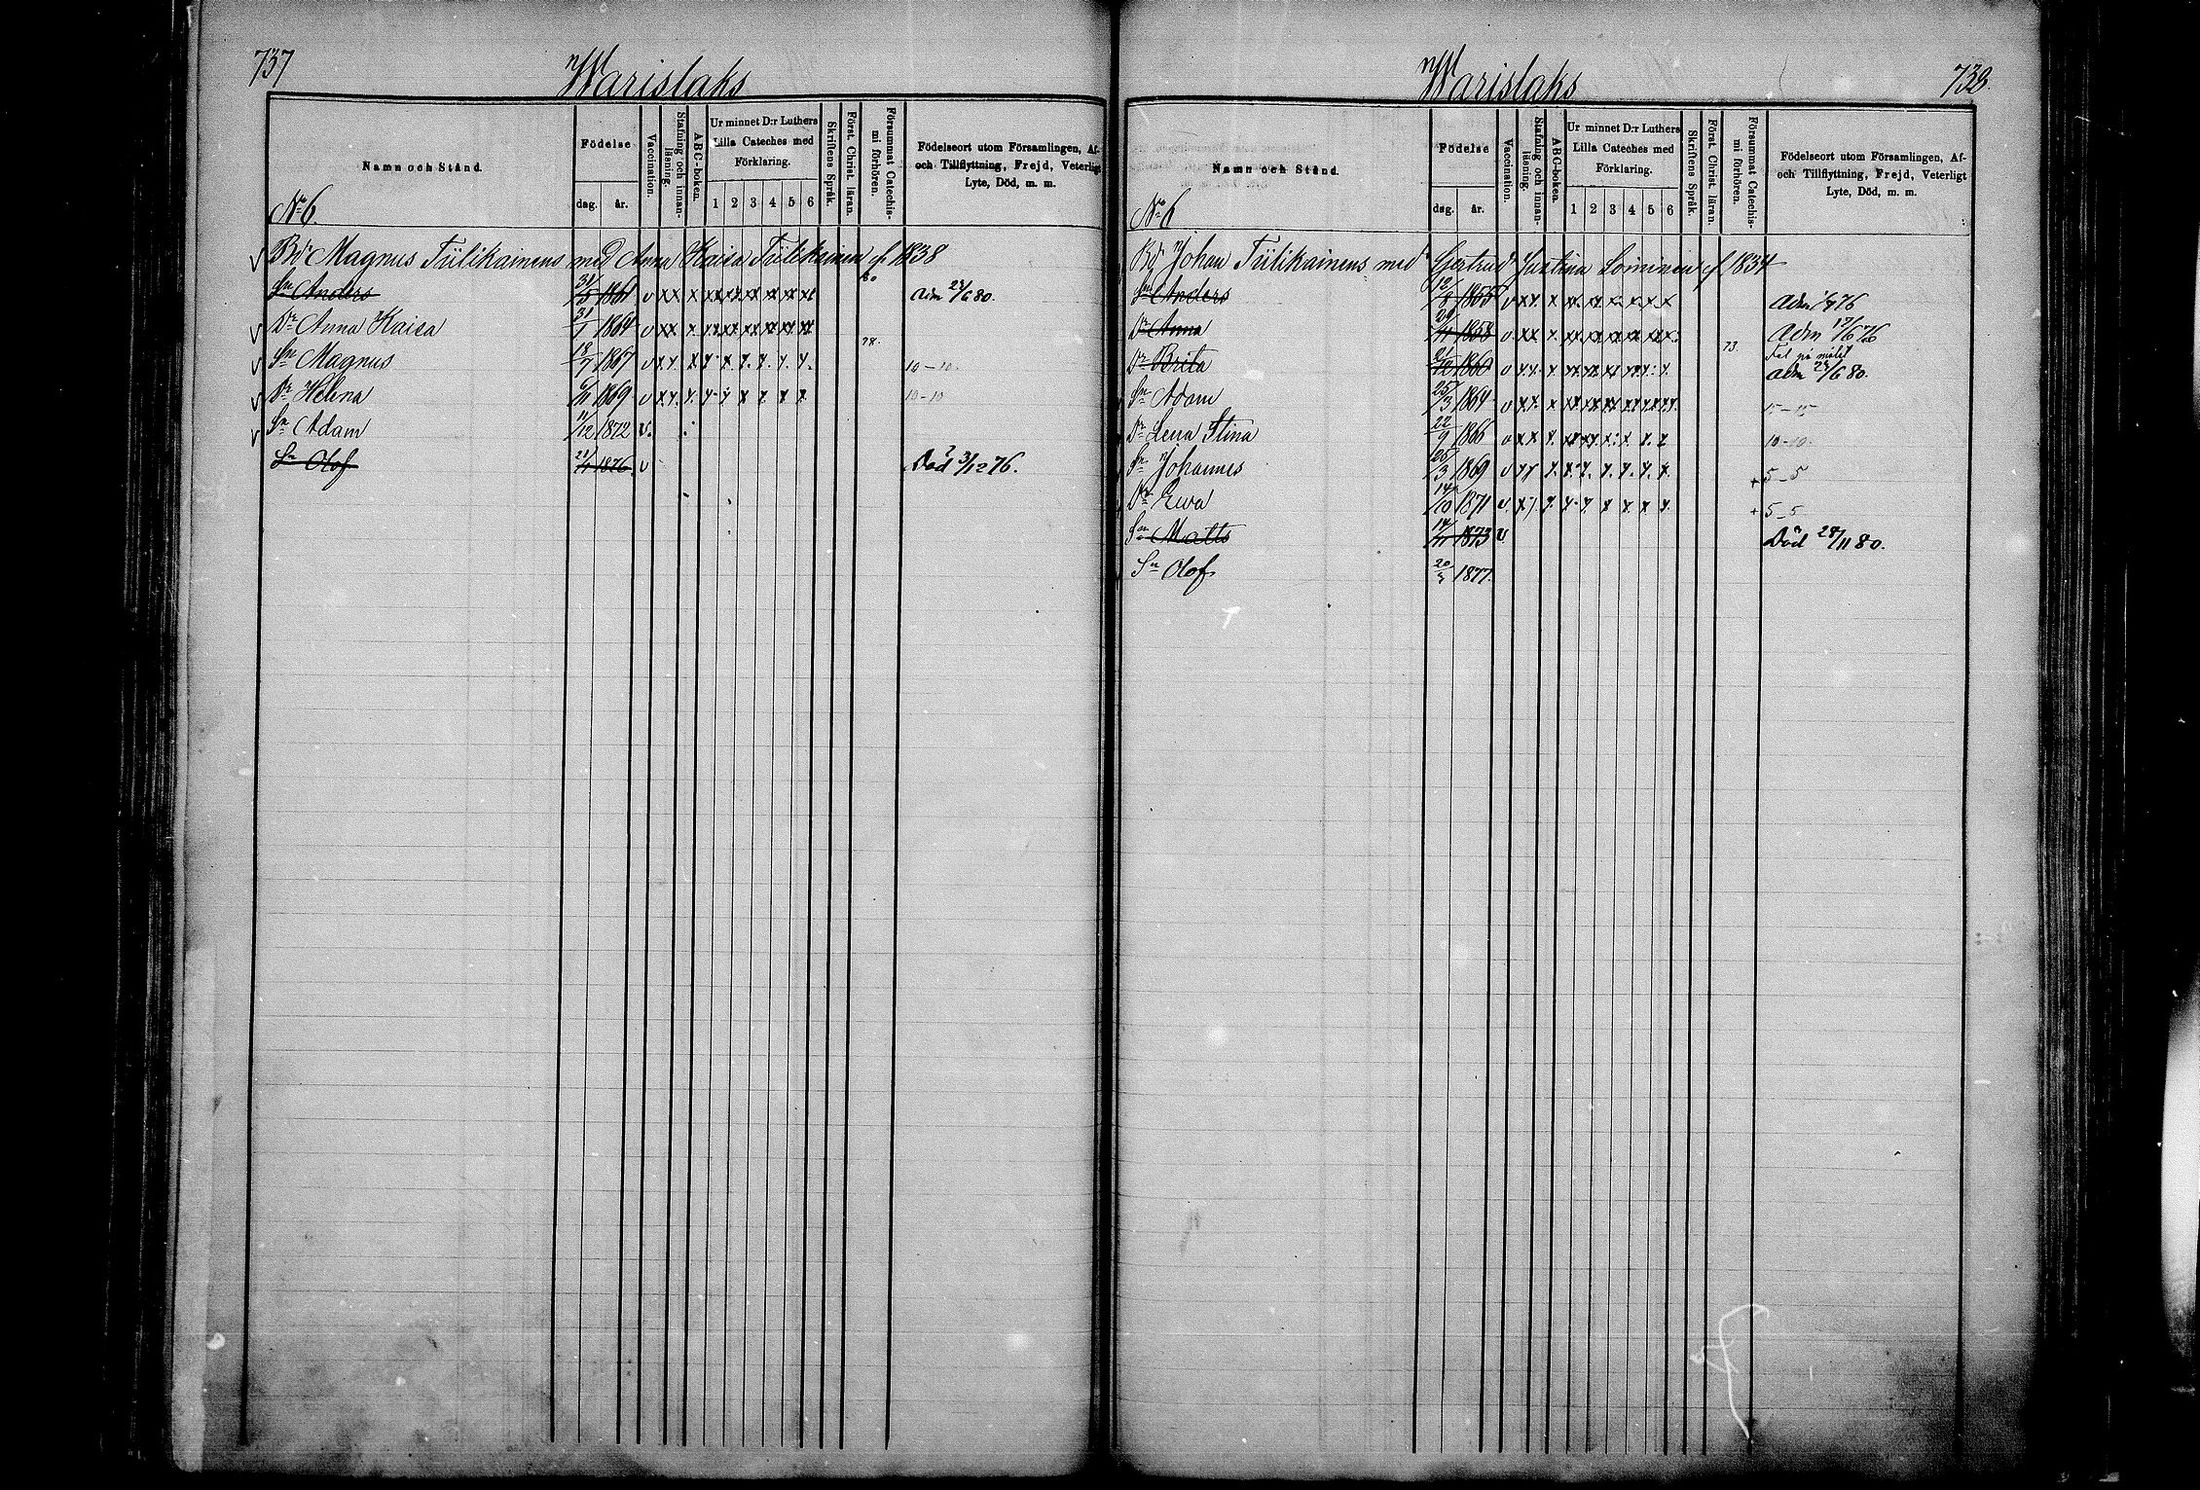 737
Warislaks
Namn och Stånd.
Födelse
dag. år.
Vaccination.
Stafning och innanläsning.
ABC-boken.
Ur minnet D:r Luthers Lilla Cateches med Förklaring.
1 2 3 4 5 6
Skriftens Språk.
Först. Christ. läran.
Försummat Catechismi förhören.
Födelseort utom Församlingen, Af- och Tillflyttning, Frejd, Veterligt Lyte, Död, m. m.
No 6
Bd Magnus Tiilikainens med Anna Kaisa Tiilikainen f 1838
Sn Anders 31/5 1861 v xx x xx xx xx xx xx xx 80 Adm 24/6 80.
Dr Anna Kaisa 31/1 1864 v xx x xx xx xx xx xx xx
Sn Magnus 18/7 1867 v x x. x x x x x x x. 78. 10-10.
Dr Helena 6/11 1869 v x x. x x x x x x x 10-10
Sn Adam 11/12 1872 v.
Sn Olof 21/4 1876. v Död 3/12 76.
Warislaks
738.
Namn och Stånd.
Födelse
dag. år.
Vaccination.
Stafning och innanläsning.
ABC-boken.
Ur minnet D:r Luthers Lilla Cateches med Förklaring.
1 2 3 4 5 6
Skriftens Språk.
Först. Christ. läran.
Försummat Catechismi förhören.
Födelseort utom Församlingen, Af- och Tillflyttning, Frejd, Veterligt Lyte, Död, m. m.
No 6
Bd Johan Tiilikainens med Gertrud Justina Loininens f 1834
Sn Anders 12/8 1855 v x x x xx x x x x x Adm 76
Dr Anna 1858 v xx x xx xx xx xx xx xx Adm 17/6 76
Dr Brita 21/12 1860 v x x x xx xx xx xx x x 73. Fel på målet
Adm 24/6 80.
Sn Adam 25/3 1864 v x x x xx xx xx xx xx xx 15-15
Dr Lena Stina 22/9 1866 v x x x xx xx x x x x 10-10.
Sn Johannes 25/3 1869 v x x x x x x x x x + 5-5
Dr Ewa 14/10 1871 v x x x x x x x x x + 5-5
Sn Matts 14/11 1873 v Död 28/11 80.
Sn Olof 20/3 1877.